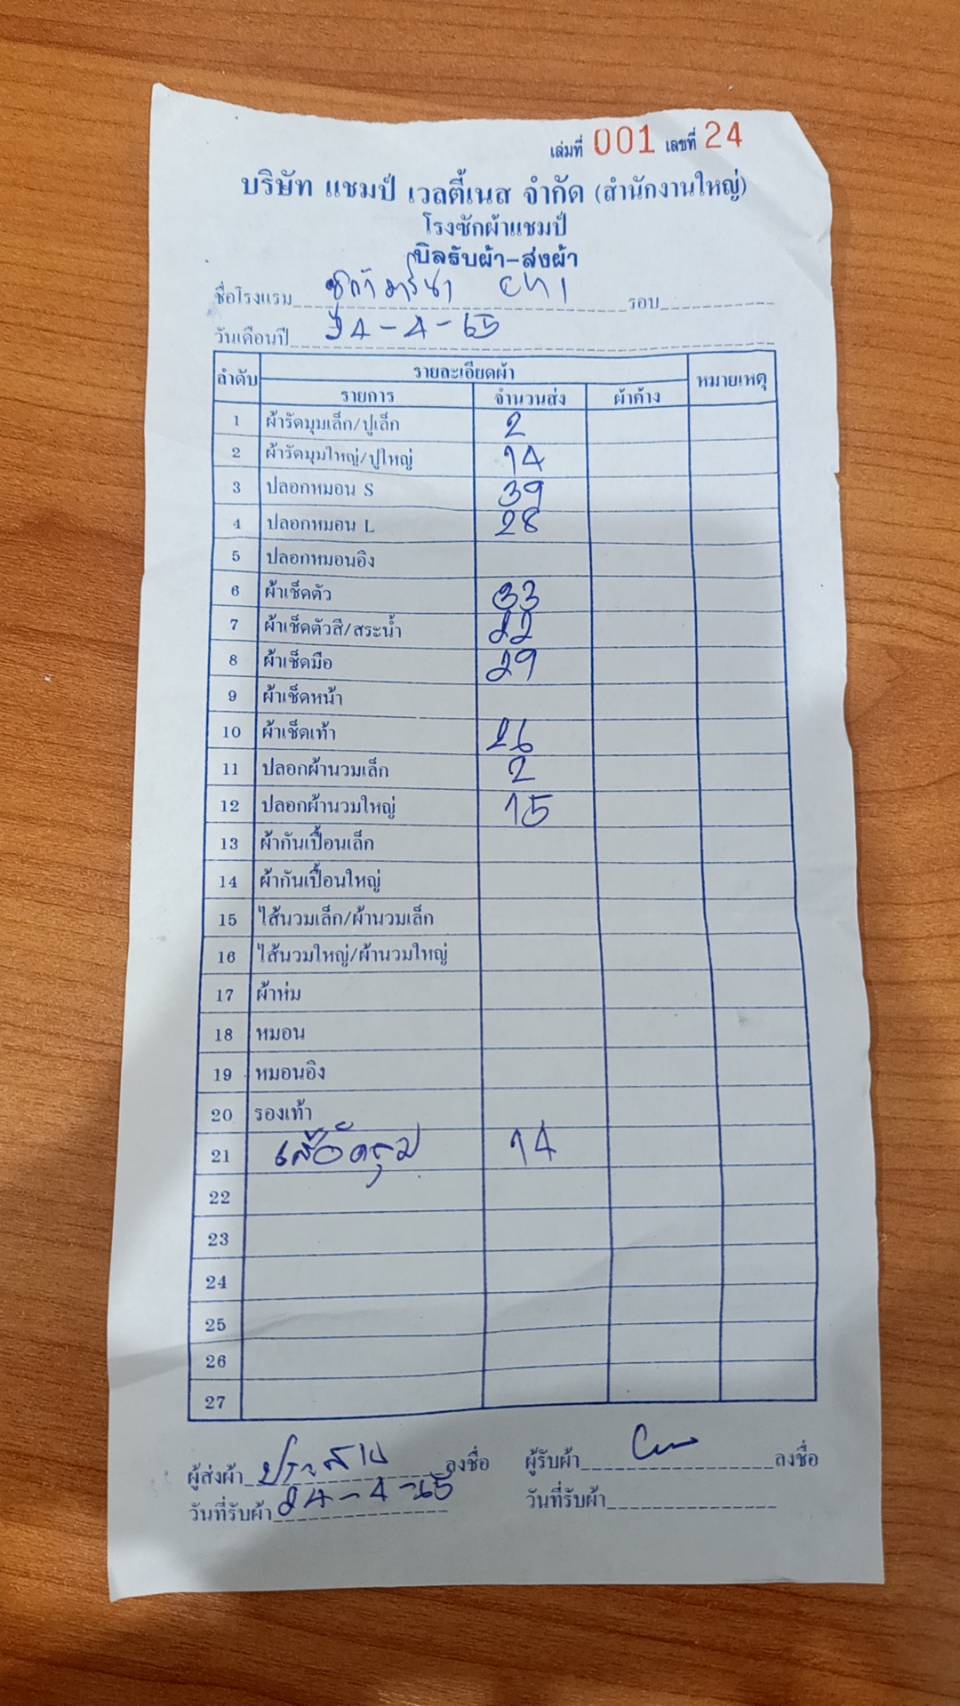 เล่มที่ 001 เลขที่ 24
บริษัท แชมป์ เวลตี้เนส จำกัด (สำนักงานใหญ่)
โรงซักผ้าแชมป์
บิลรับผ้า-ส่งผ้า
ชื่อโรงแรม รอบ
วันเดือนปี 24-4-65
ลำดับ รายละเอียดผ้า หมายเหตุ
รายการ จำนวนส่ง ผ้าค้าง
1 ผ้ารัดมุมเล็ก/ปูเล็ก 2
2 ผ้ารัดมุมใหญ่/ปูใหญ่ 14
3 ปลอกหมอน S 39
4 ปลอกหมอน L 28
5 ปลอกหมอนอิง
6 ผ้าเช็ดตัว 33
7 ผ้าเช็ดตัวสี/สระน้ำ 22
8 ผ้าเช็ดมือ 29
9 ผ้าเช็ดหน้า
10 ผ้าเช็ดเท้า 26
11 ปลอกผ้านวมเล็ก 2
12 ปลอกผ้านวมใหญ่ 15
13 ผ้ากันเปื้อนเล็ก
14 ผ้ากันเปื้อนใหญ่
15 ไส้นวมเล็ก/ผ้านวมเล็ก
16 ไส้นวมใหญ่/ผ้านวมใหญ่
17 ผ้าห่ม
18 หมอน
19 หมอนอิง
20 รองเท้า
21 14
22
23
24
25
26
27
ผู้ส่งผ้า ลงชื่อ ผู้รับผ้า ลงชื่อ
วันที่รับผ้า 24-4-65 วันที่รับผ้า